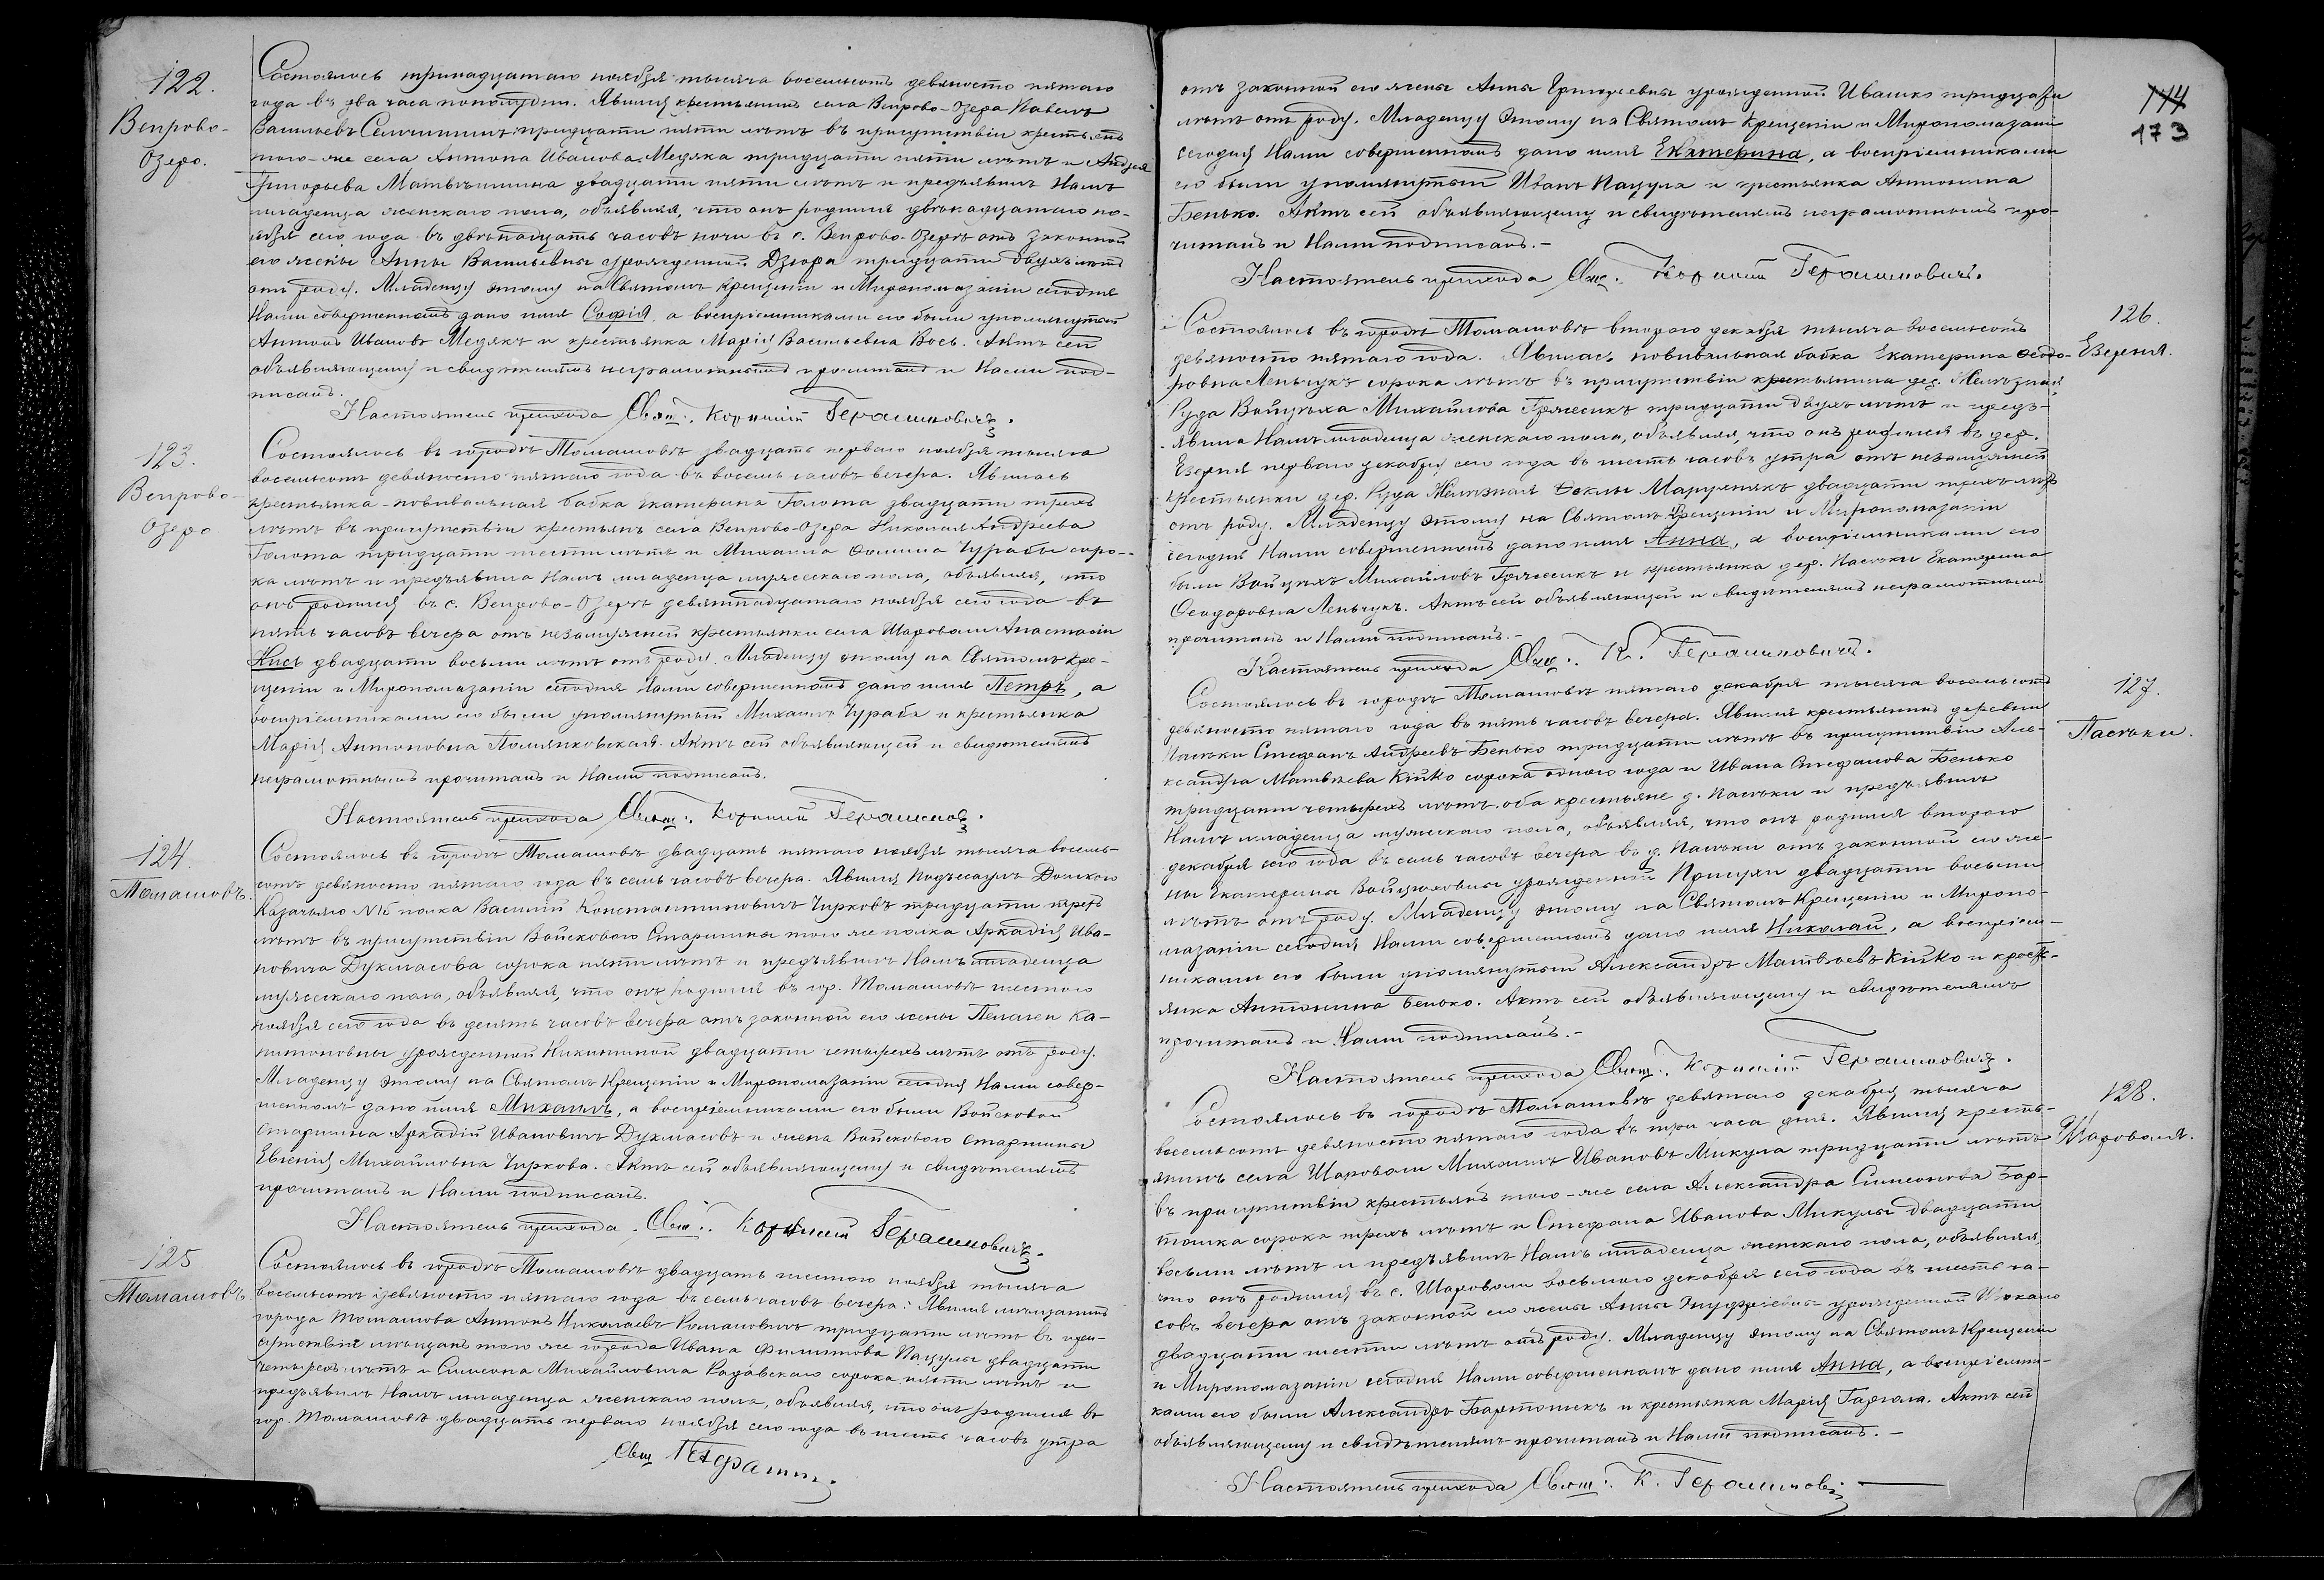 122.
Вепрово-
Озеро.
Состоялось тринадцатаго ноября тысяча восемьсотъ девяносто пятаго
года въ два часа пополудни. Явился крестьянинъ села Вепрово-Озера Павелъ
Васильевъ тридцати пяти лѣтъ въ присутствіи крестьянъ
того-же села Антона Иванова Медяка тридцати пяти лѣтъ и Андрея
Григорьева двадцати пяти лѣтъ и предъявилъ Намъ
младенца женскаго пола, объявляя, что онъ родился двѣнадцатаго но-
ября сего года въ двѣнадцать часовъ ночи въ с. Вепрово-Озерѣ отъ законной
его жены Анны Васильевны урожденной Дзюра тридцати двухъ лѣтъ
отъ роду. Младенцу этому на Святомъ Крещеніи и Миропомазаніи сегодня
Нами совершенномъ дано имя Софія, а воспріемниками его были упомянутый
Антонъ Ивановъ Медякъ и крестьянка Марія Васильевна Вось. Актъ сей
объявляющему и свидѣтелямъ неграмотнымъ прочитанъ и Нами под-
писанъ.
Настоятель прихода Свящ. Корнилій Герасимовичъ.
123.
Вепрово-
Озеро
Состоялось въ городѣ Томашовѣ двадцать перваго ноября тысяча
восемьсотъ девяносто пятаго года въ восемь часовъ вечера. Явилась
крестьянка-повивальная бабка Екатерина Голота двадцати трехъ
лѣтъ въ присутствіи крестьянъ села Вепрово-Озера Николая Андреева
Голота тридцати шести лѣтъ и Михаила Ѳомина Чурабы соро-
ка лѣтъ и предъявила Намъ младенца мужескаго пола, объявляя, что
онъ родился въ с. Вепрово-Озерѣ девятнадцатаго ноября сего года въ
пять часовъ вечера отъ незамужней крестьянки села Шароволи Анастасіи
Кись двадцати восьми лѣтъ отъ роду. Младенцу этому на Святомъ Кре-
щеніи и Миропомазаніи сегодня Нами совершенномъ дано имя Петръ, а
воспріемниками его были упомянутый Михаилъ Чураба и крестьянка
Марія Антоновна Помянковская. Актъ сей объявляющей и свидѣтелямъ
неграмотнымъ прочитанъ и Нами подписанъ.
Настоятель прихода Свящ. Корнилій Герасимов.
124.
Томашовъ.
Состоялось въ городѣ Томашовѣ двадцать пятаго ноября тысяча восемь-
сотъ девяносто пятаго года въ семь часовъ вечера. Явился Подъесаулъ Донскаго
Казачьяго № полка Василій Константиновичъ Чирковъ тридцати трехъ
лѣтъ въ присутствіи Войсковаго Старшины того же полка Аркадія Ива-
новича Дукмасова сорока пяти лѣтъ и предъявилъ Намъ младенца
мужескаго пола, объявляя, что онъ родился въ гор. Томашовѣ шестого
ноября сего года въ десять часовъ вечера отъ законной его жены Пелагеи Ка-
питоновны урожденной Никитиной двадцати четырехъ лѣтъ отъ роду.
Младенцу этому на Святомъ Крещеніи и Миропомазаніи сегодня Нами совер-
шенномъ дано имя Михаилъ, а воспріемниками его были Войсковой
Старшина Аркадій Ивановичъ Дукмасовъ и жена Войскового Старшины
Евгенія Михайловна Чиркова. Актъ сей объявляющему и свидѣтелямъ
прочитанъ и Нами подписанъ.
Настоятель прихода. Свящ. Корнилій Герасимовичъ.
125
Томашовъ.
Состоялось въ городѣ Томашовѣ двадцать шестого ноября тысяча
восемьсотъ девяносто пятаго года въ семь часовъ вечера. Явился мѣщанинъ
города Томашова Антонъ Николаевъ Романовичъ тридцати лѣтъ въ при-
сутствіи мѣщанъ того же города Ивана Филиппова Пацулы двадцати
четырехъ лѣтъ и Симеона Михайловича Радавскаго сорока пяти лѣтъ и
предъявилъ Намъ младенца женскаго пола, объявляя, что онъ родился въ
гор. Томашовѣ двадцать перваго ноября сего года въ шесть часовъ утра
Свящ
144
173
отъ законной его жены Анны Григорьевны урожденной Ивашко тридцати
лѣтъ отъ роду. Младенцу этому на Святомъ Крещеніи и Миропомазаніи
сегодня Нами совершенномъ дано имя Екатерина, а воспріемниками
его были упомянутый Иванъ Пацула и крестьянка Антонина
Бенько. Актъ сей объявляющему и свидѣтелямъ неграмотнымъ про-
читанъ и Нами подписанъ.-
Настоятель прихода Свящ. Корнилій Герасимовичъ.
126.
Езерня.
Состоялось въ городѣ Томашовѣ второго декабря тысяча восемьсотъ
девяносто пятаго года. Явилась повивальная бабка Екатерина Ѳеодо-
ровна Леньчукъ сорока лѣтъ въ присутствіи крестьянина дер. Желѣзная
Руда Войцѣха Михайлова Гржесикъ тридцати двухъ лѣтъ и предъ-
явила Намъ младенца женскаго пола, объявляя, что онъ родился въ дер.
Езерня перваго декабря сего года въ шесть часовъ утра отъ незамужней
крестьянки дер. Руда Желѣзная Ѳеклы Марушнякъ двадцати трехъ лѣтъ
отъ роду. Младенцу этому на Святомъ Крещеніи и Миропомазаніи
сегодня Нами совершенномъ дано имя Анна, а воспріемниками его
были Войцѣхъ Михайловъ Гржесикъ и крестьянка дер. Пасѣки Екатерина
Ѳеодоровна Леньчукъ. Актъ сей объявляющей и свидѣтелямъ неграмотнымъ
прочитанъ и Нами подписанъ.-
Настоятель прихода Свящ. К. Герасимовичъ.
127.
Пасѣки.
Состоялось въ городѣ Томашовѣ пятаго декабря тысяча восемьсотъ
девяносто пятаго года въ пять часовъ вечера. Явился крестьянинъ деревни
Пасѣки Стефанъ Андреевъ Бенько тридцати лѣтъ въ присутствіи Але-
ксандра Матвѣева Кійко сорока одного года и Ивана Стефанова Бенько
тридцати четырехъ лѣтъ оба крестьяне д. Пасѣки и предъявилъ
Намъ младенца мужескаго пола, объявляя, что онъ родился второго
декабря сего года въ семь часовъ вечера въ д. Пасѣки отъ законной его же-
ны Екатерины Войцѣховны урожденной двадцати восьми
лѣтъ отъ роду. Младенцу этому на Святомъ Крещеніи и Миропо-
мазаніи сегодня Нами совершенномъ дано имя Николай, а воспріем-
никами его были упомянутый Александръ Матвѣевъ Кійко и кресть-
янка Антонина Бенько. Актъ сей объявляющему и свидѣтелямъ
прочитанъ и Нами подписанъ.-
Настоятель прихода Свящ. Корнилій Герасимовичъ.
128.
Шароволя.
Состоялось въ городѣ Томашовѣ девятаго декабря тысяча
восемьсотъ девяносто пятаго года въ три часа дня. Явился кресть-
янинъ села Шароволи Михаилъ Ивановъ Микула тридцати лѣтъ
въ присутствіи крестьянъ того-же села Александра Симеонова Бар-
тошка сорока трехъ лѣтъ и Стефана Иванова Микулы двадцати
восьми лѣтъ и предъявилъ Намъ младенца женскаго пола, объявляя,
что онъ родился въ с. Шароволи восьмого декабря сего года въ шесть ча-
совъ вечера отъ законной его жены Анны Онуфріевны урожденной
двадцати шести лѣтъ отъ роду. Младенцу этому на Святомъ Крещеніи
и Миропомазаніи сегодня Нами совершенномъ дано имя Анна, а воспріемни-
ками его были Александръ Бартошекъ и крестьянка Марія Гаргола. Актъ сей
объявляющему и свидѣтелямъ прочитанъ и Нами подписанъ.-
Настоятель прихода Свящ. К. Герасимов